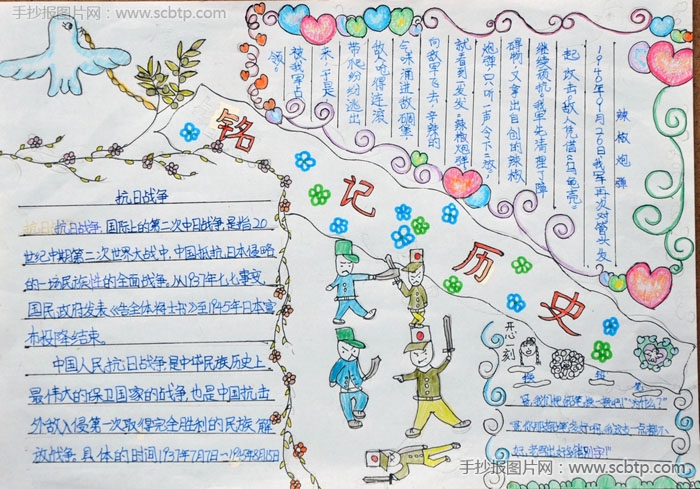 手抄报图片网：www.scbtp.com
铭记历史
辣椒炮弹
1940年9月26日我军再次对管头发
起攻击敌人凭借“乌龟壳”
继续顽抗。我军先清理了障
碍物，又拿出自创的辣椒
炮弹。只听一声令下：“放”
就看到一发发“辣椒炮弹”
向敌军飞去，辛辣的
气味涌进敌碉堡，
敌人呛得连滚
带爬纷纷逃出
来，于是
被我军占
领。
抗日战争
抗日战争，国际上的第二次中日战争，是指20
世纪中期第二次世界大战中，中国抵抗日本侵略
的一场民族性的全面战争。从1937年七七事变
国民政府发表《告全体将士书》至1945年日本宣
布投降结束。
中国人民抗日战争是中华民族历史上
最伟大的保卫国家的战争也是中国抗击
外敌入侵第一次取得完全胜利的民族解
放战争。具体的时间1937年7月7日—1945年8月15日
开心一刻
手抄报图片网：www.scbtp.com